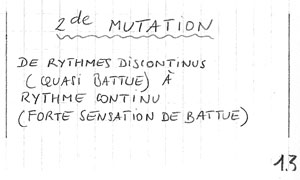 2de MUTATION
DE RYTHMES DISCONTINUS
(QUASI BATTUE) À
RYTHME CONTINU
(FORTE SENSATION DE BATTUE)
13